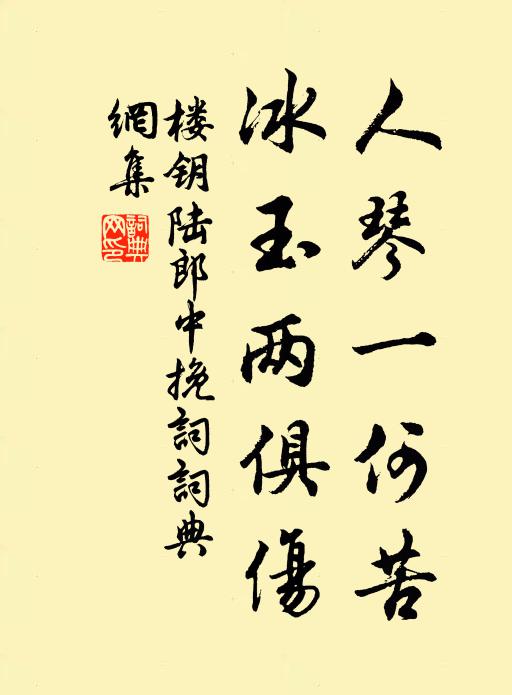 人琴一何苦
冰玉两俱傷
楼钥陆郎中挽詞詞典
網集
詞典
网印